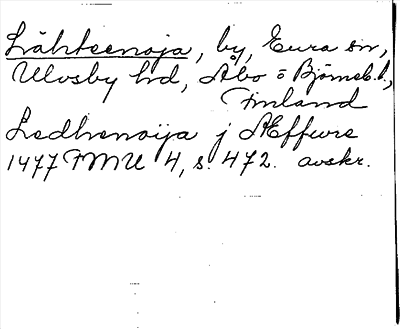 Lähteenoja, by, Eura sn,
Ulvsby hd, Åbo o Björneb. l,
Finland
Ledhenoija j Æffwre
1477 FMU 4, s. 472. avskr.